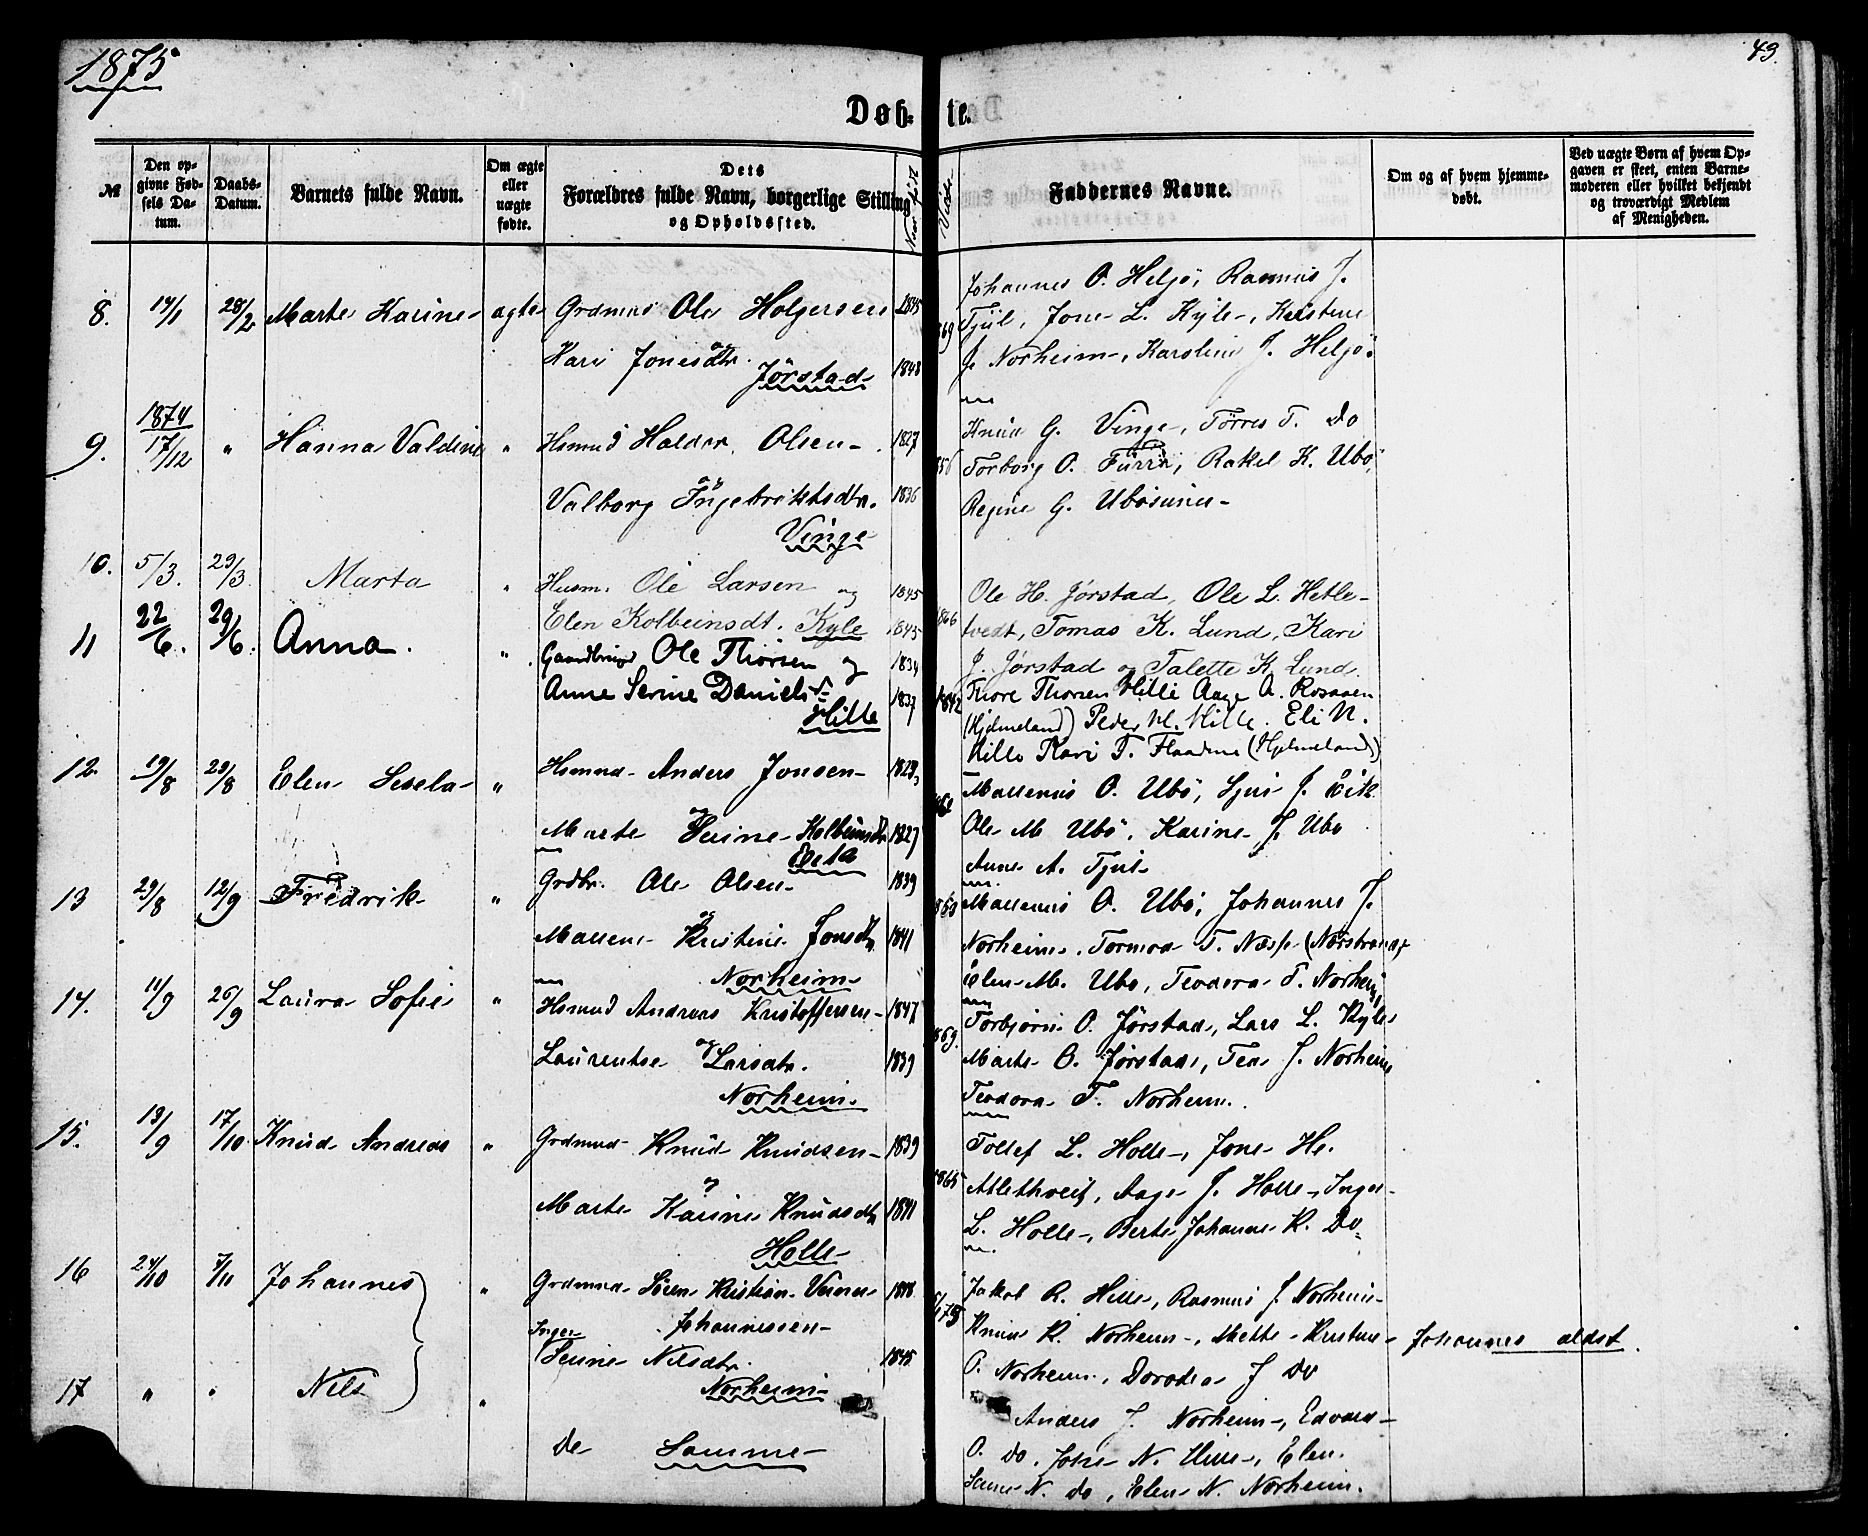 1875
43.
Døb- te.
№
Den opgivne Fødsels Datum.
Daabs-Datum.
Barnets fulde Navn.
Om ægte eller uægte fødte.
Dets Forældres fulde Navn, borgerlige Stilling og Opholdssted.
Faddernes Navne.
Om og af hvem hjemmedøbt.
Ved uægte Børn af hvem Opgaven er skeet, enten Barnemoderen eller hvilket bekjendt og troværdigt Medlem af Menigheden.
8. 14/1 28/2 Marte Karine ægte Grdmnd Ole Holgersen 1845
og
Kari Jonesdtr. 1848
Jørstad
869
Johannes O. Heljö, Rasmus J.
Tjul, Jone L. Kyle, Kristine
J. Norheim, Karoline J. Heljö.
9. 1874 17/12 " Hanna Valdine " Hsmnd Haldor Olsen 1827
og
Valborg Ingebriktsdtr. 1836
Vinge
856
Knud G. Vinge, Tørres T. Do
Torborg O. Furre, Rakel K. Ubö,
Regine G. Ubösunes
10. 5/3. 29/3. Marta " Husm. Ole Larsen og 1845
Elen Kolbeinsdt. Kyle 1845
1866
Ole H. Jørstad, Ole L. Hetle-
tvedt, Tomas K. Lund, Kari
J. Jørstad og Talette K. Lund.
11 22/6. 29/6. Anna. " Gaardbrugr Ole Thorsen og 1834
Anne Serine Danielsd. 1837
Hille
1842
Thore Thorsen Hille Aage A. Rossaen
(Hjelmeland) Peder M. Hille. Eli N.
Hille Kari T. Flaadene (Hjelmeland)
12. 19/8 29/8 Elen Sesela " Hsmnd Anders Jonsen
og
Marte Serine Kolbeinsdtr 1827
Eeta
Massenus O. Ubö, Sjur J. Eik
Ole M Ubö, Karine J. Ubö
Anne A. Tjul
13 29/8 12/9 Fredrik " Grdbr. Ole Olsen 1839
og
Massene Kristine Jonsdtr 1841
Norheim
869
Massenus O. Ubö, Johannes J.
Norheim, Tormod T. Næsse (Nærstrand)
Elen M. Ubö, Teodora T. Norheim
14. 11/9 26/9 Laura Sofie " Hsmnd Andreas Kristoffersen 1847
og
Laurentse Larsdtr. 1839
Norheim
869.
Torbjørn O. Jørstad, Lars L. Kyle
Marte O. Jørstad, Tea J. Norheim
Teodora T. Norheim.
15. 13/9 17/10 Knud Andreas " Grdmnd Knud Knudsen 1839
og
Marte Karine Knudsdtr 1841
Holle
1865
Tollef L. Holle, Jone H.
Atlethveit, Aage J. Holle, Inger
L. Holle, Berte Johanne K. Do
16 24/10 7/11 Johannes " Grdmnd Søren Kristian Verner 1848
Johannessen
Inger
Serine Nilsdtr. 1845
Norheim
Jakob R. Hille, Rasmus J. Norheim
Knud K. Norheim, Mette Kristine
O. Norheim, Dorodea J Do
Johannes ældst.
17 " " Nils "
de Samme
Anders J. Norheim, Edvard
O. do, Jone N. Hille, Elen
Serine N. do, Elen N. Norheim.